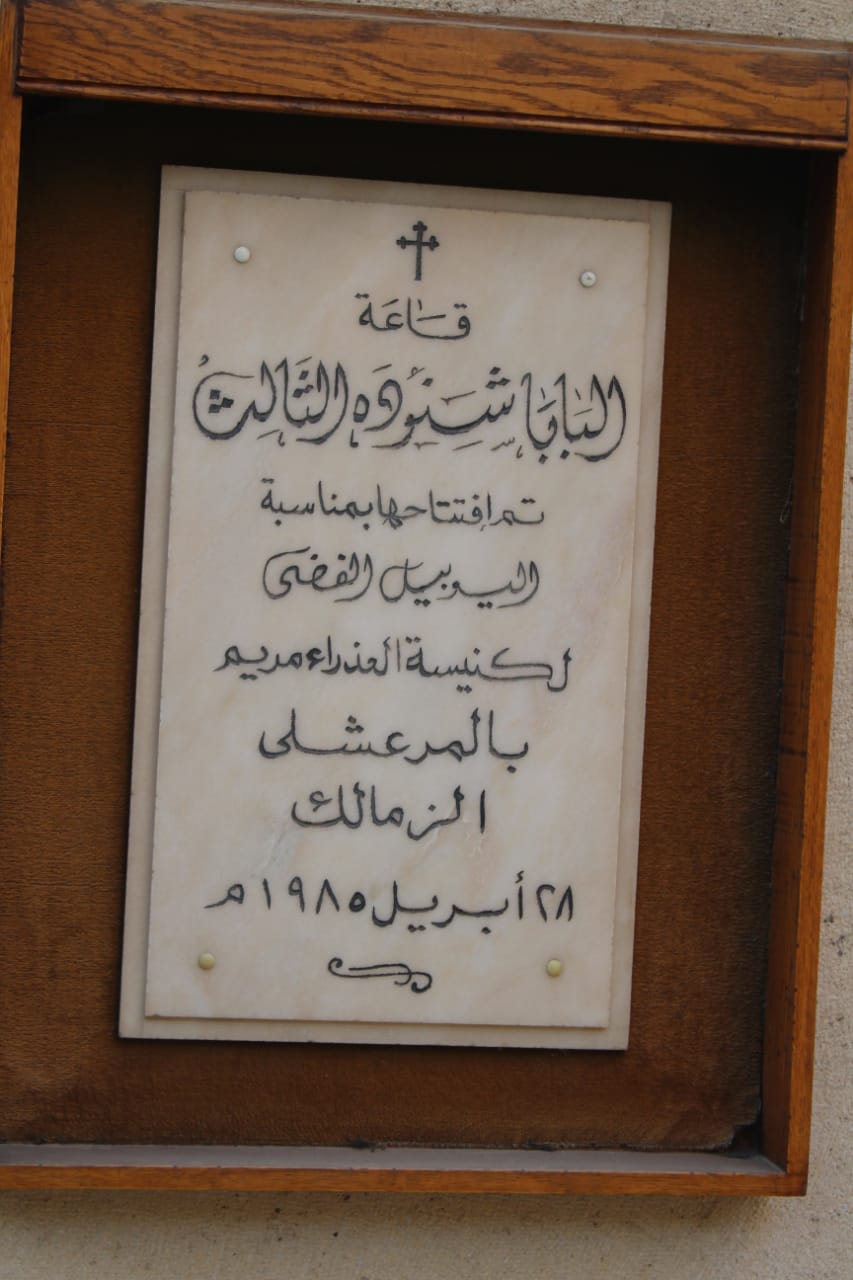 قَاعَة
البَابَا شَنوُدَه الثَالِثُ
تم إفتتاحها بمناسبة
اليوبيل الفضى
لكنيسة العذراء مريم
بالمرعشلى
الزمالك
٢٨ أبريل ١٩٨٥ م